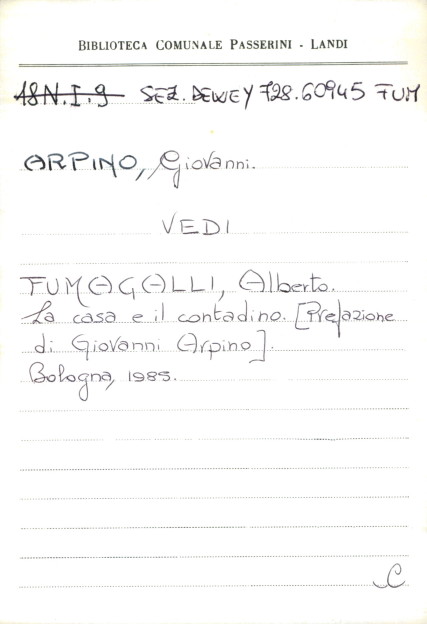 BIBLIOTECA COMUNALE PASSERINI - LANDI
18N.I.9 SEZ. DEWEY 728.60945 FUM
ARPINO, Giovanni.
VEDI
FUMAGALLI, Alberto.
La casa e il contadino. [Prefazione
di Giovanni Arpino].
Bologna, 1985.
C